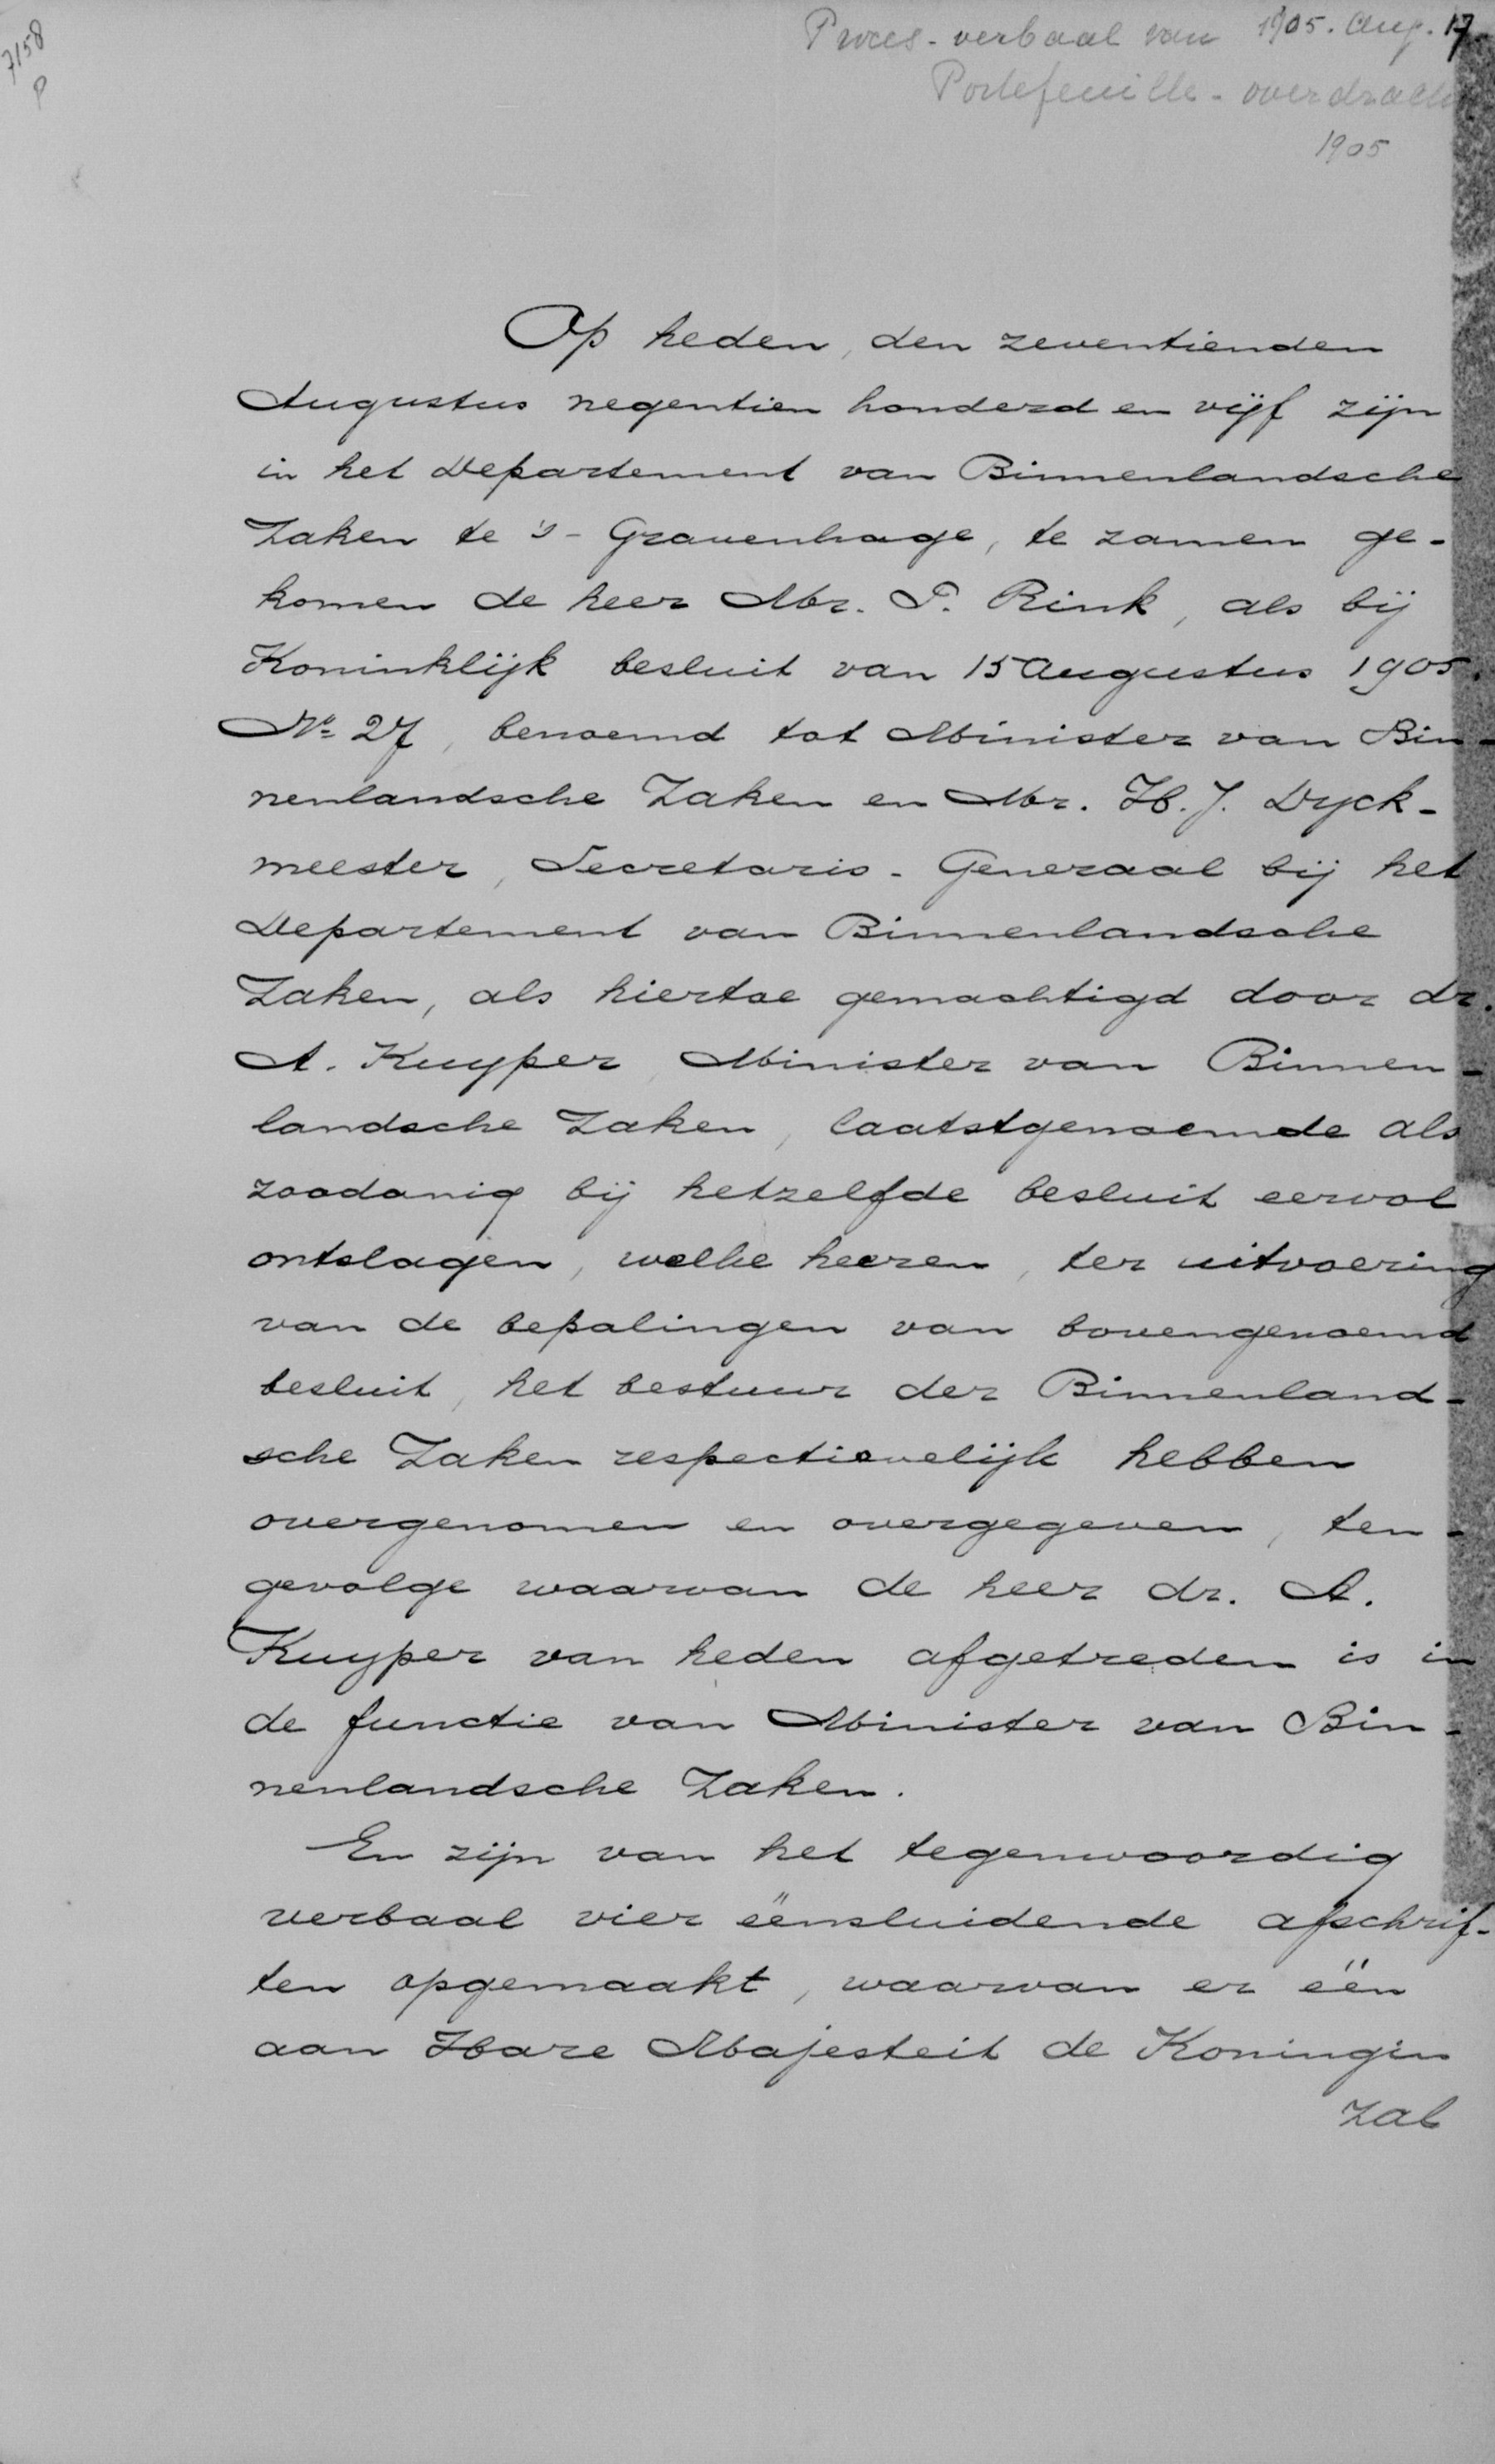 7158
P
Proces-verbaal van 1905. Aug. 17.
Portefeuille-overdracht
1905
Op heden, den zeventienden
Augustus negentien honderd en vijf zijn
in het Departement van Binnenlandsche
Zaken te 's-Gravenhage, te zamen ge-
komen de heer Mr. P. Rink, als bij
Koninklijk besluit van 15 Augustus 1905.
No. 27, benoemd tot Minister van Bin-
nenlandsche Zaken en Mr. H. J. Dyck-
meester, Secretaris-Generaal bij het
Departement van Binnenlandsche
Zaken, als hiertoe gemachtigd door dr.
A. Kuyper, Minister van Binnen-
landsche Zaken, laatstgenoemde als
zoodanig bij hetzelfde besluit eervol
ontslagen, welke heeren, ter uitvoering
van de bepalingen van bovengenoemd
besluit, het bestuur der Binnenland-
sche Zaken respectievelijk hebben
overgenomen en overgegeven, ten-
gevolge waarvan de heer dr. A.
Kuyper van heden afgetreden is in
de functie van Minister van Bin-
nenlandsche Zaken.
En zijn van het tegenwoordig
verbaal vier ëensluidende afschrif-
ten opgemaakt, waarvan er één
aan Hare Majesteit de Koningin
zal